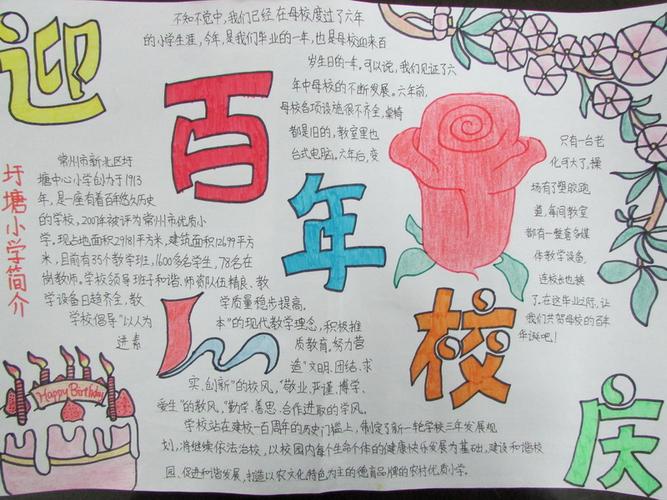 迎百年校庆
不知不觉中,我们已经在母校度过了六年
的小学生涯,今年,是我们毕业的一年,也是母校迎来百
岁生日的一年,可以说,我们见证了六
年中母校的不断发展。六年前,
母校各项设施很不齐全,桌椅
都是旧的,教室里也
只有一台老
台式电脑。六年后,变
化可大了,操
场有了塑胶跑
道,每间教室
都有一整套多媒
体教学设备,
连校长也换
了。在这毕业之际,让
我们共贺母校的百年
华诞吧!
圩塘小学简介
常州市新北区圩
塘中心小学创办于1913
年,是一座有着百年悠久历史
的学校,2007年被评为常州市优质小
学。现占地面积29181平方米,建筑面积12699平方
米,目前有35个教学班,1600多名学生,78名在
岗教师。学校领导班子和谐,师资队伍精良、教
学设备日趋齐全,教
学质量稳步提高。
学校倡导“以人为
本”的现代教学理念,积极推
进素
质教育,努力营
造“文明、团结、求
实、创新”的校风,“敬业、严谨、博学、
爱生”的教风,“勤学、善思、合作进取的学风。
学校站在建校一百周年的历史门槛上,制定了新一轮学校三年发展规
划,将继续依法治校,以校园内每个生命个体的健康快乐发展为基础,建设和谐校
园、促进和谐发展,打造以农文化特色为主的德育品牌的农村优质小学。
Happy Birthday